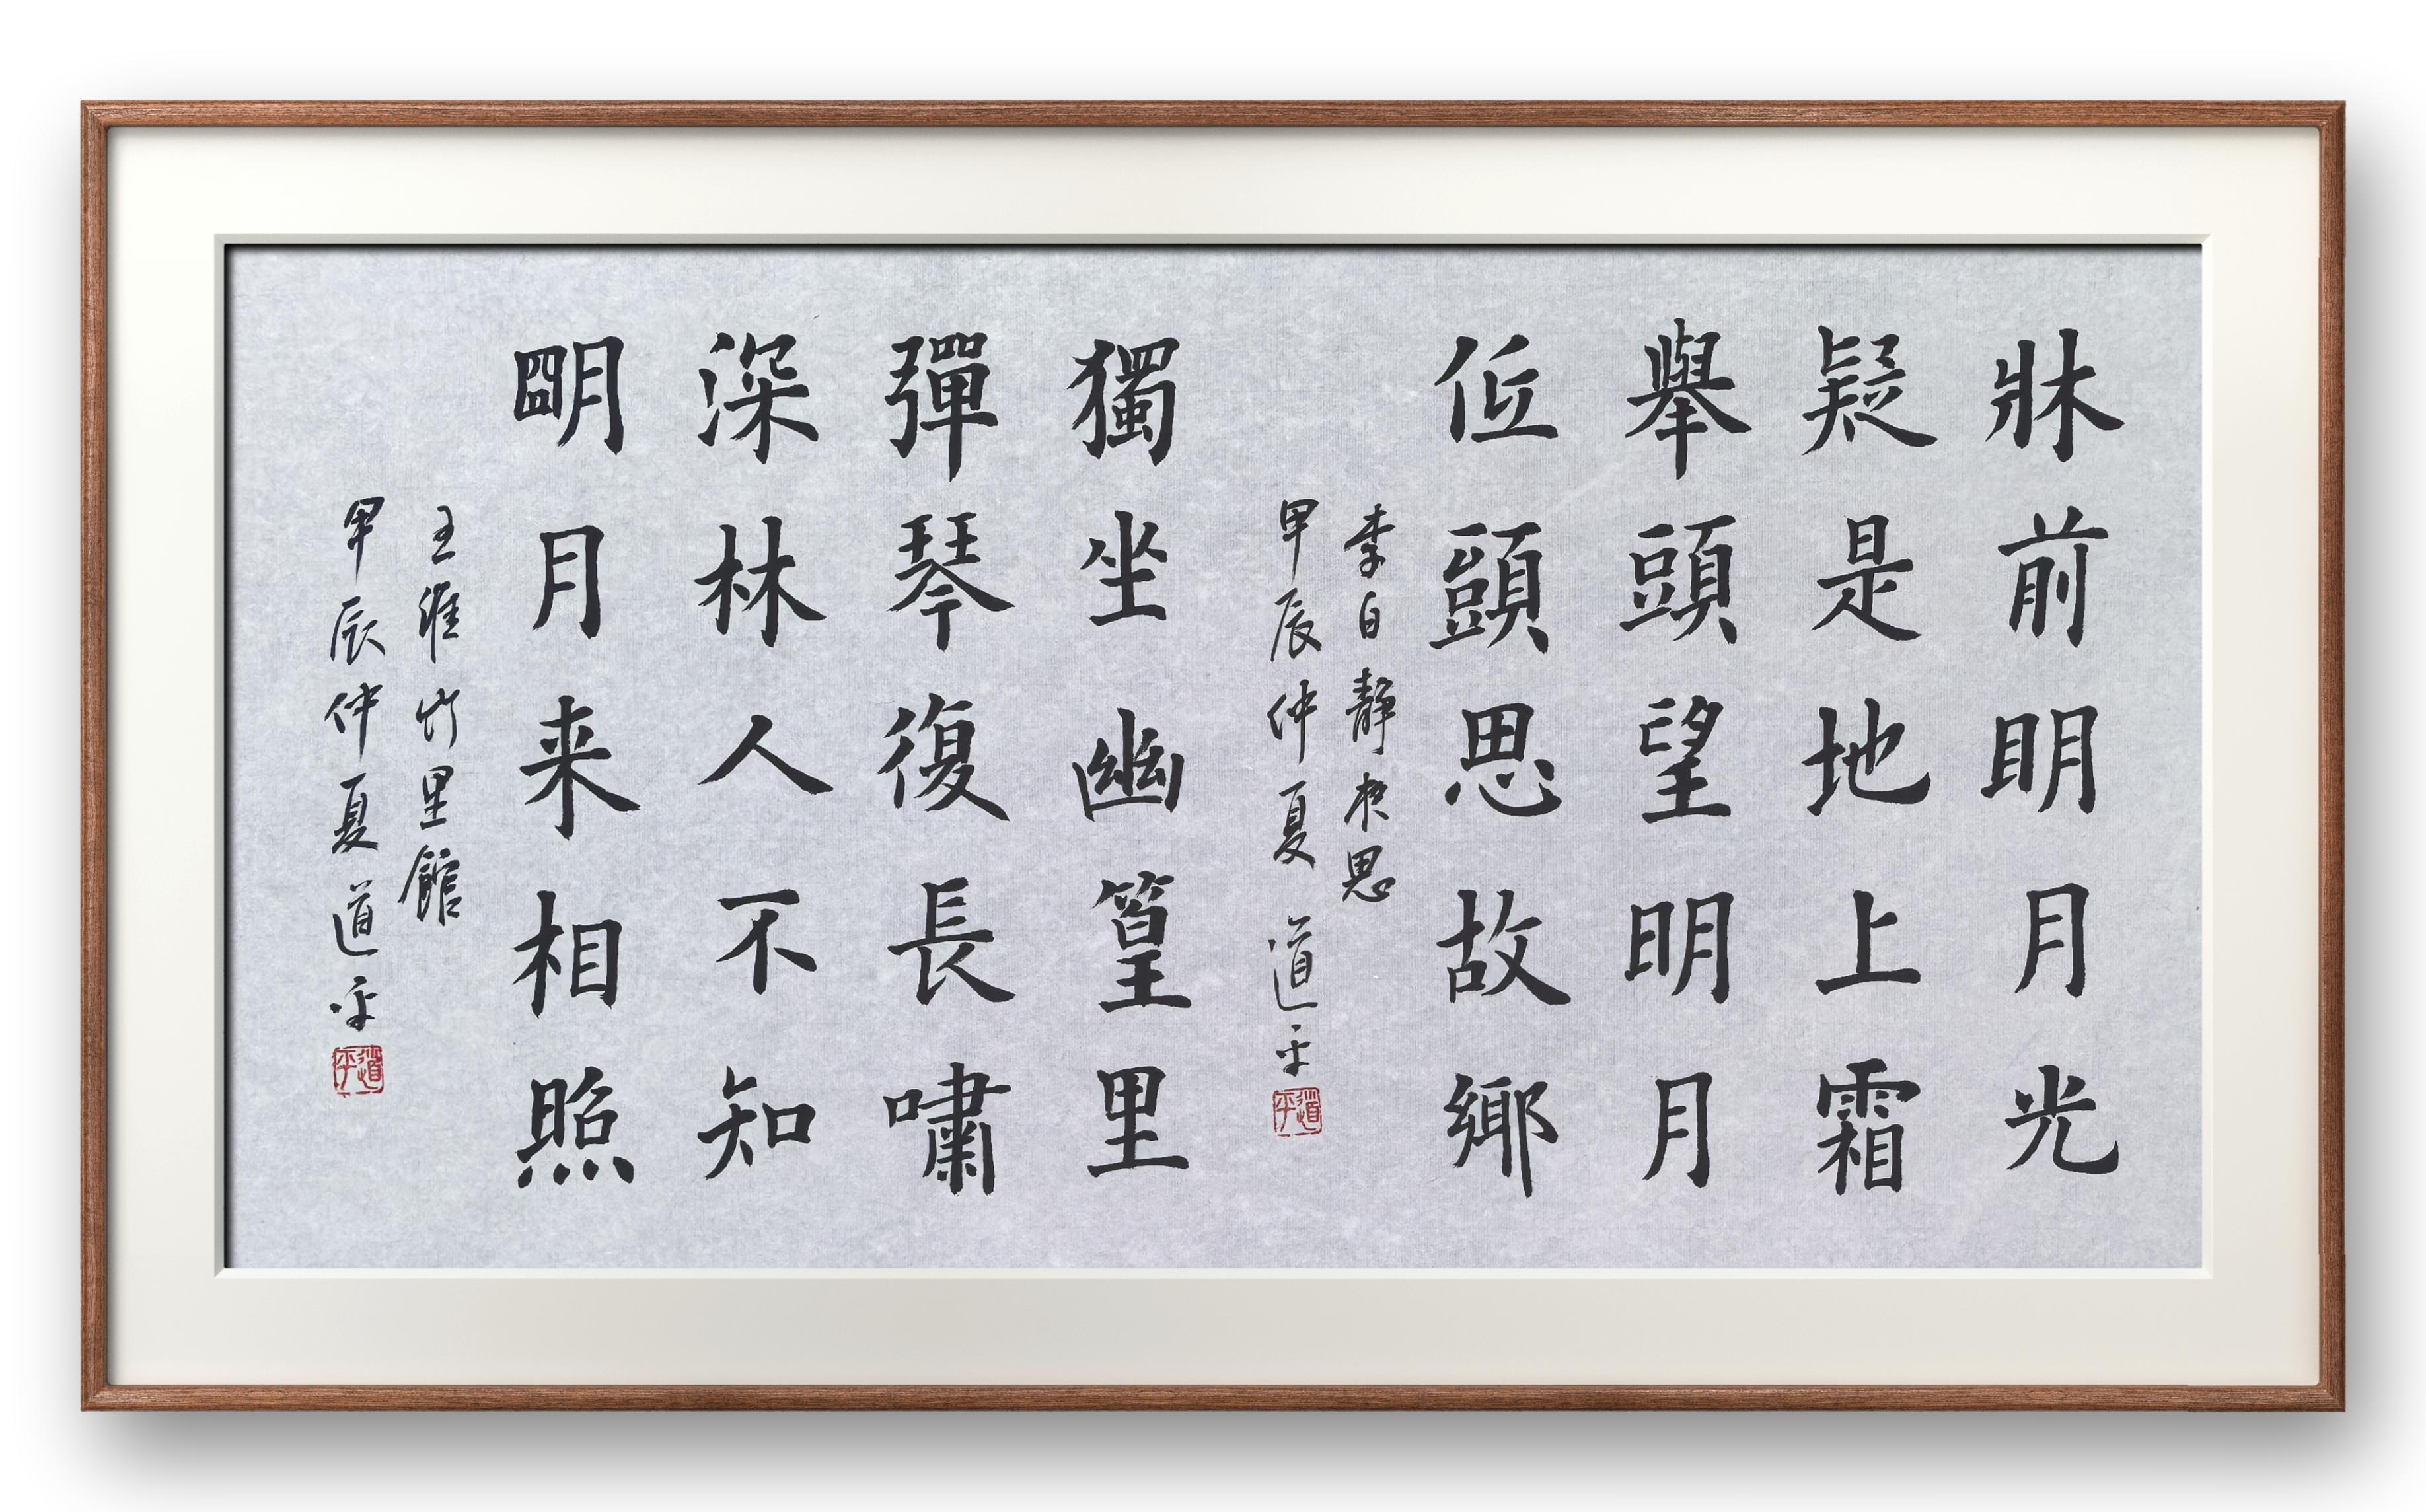 牀前明月光
疑是地上霜
舉頭望明月
低頭思故鄉
李白靜夜思
甲辰仲夏 道平
道平
獨坐幽篁里
彈琴復長嘯
深林人不知
朙月来相照
王維竹里館
甲辰仲夏 道平
道平